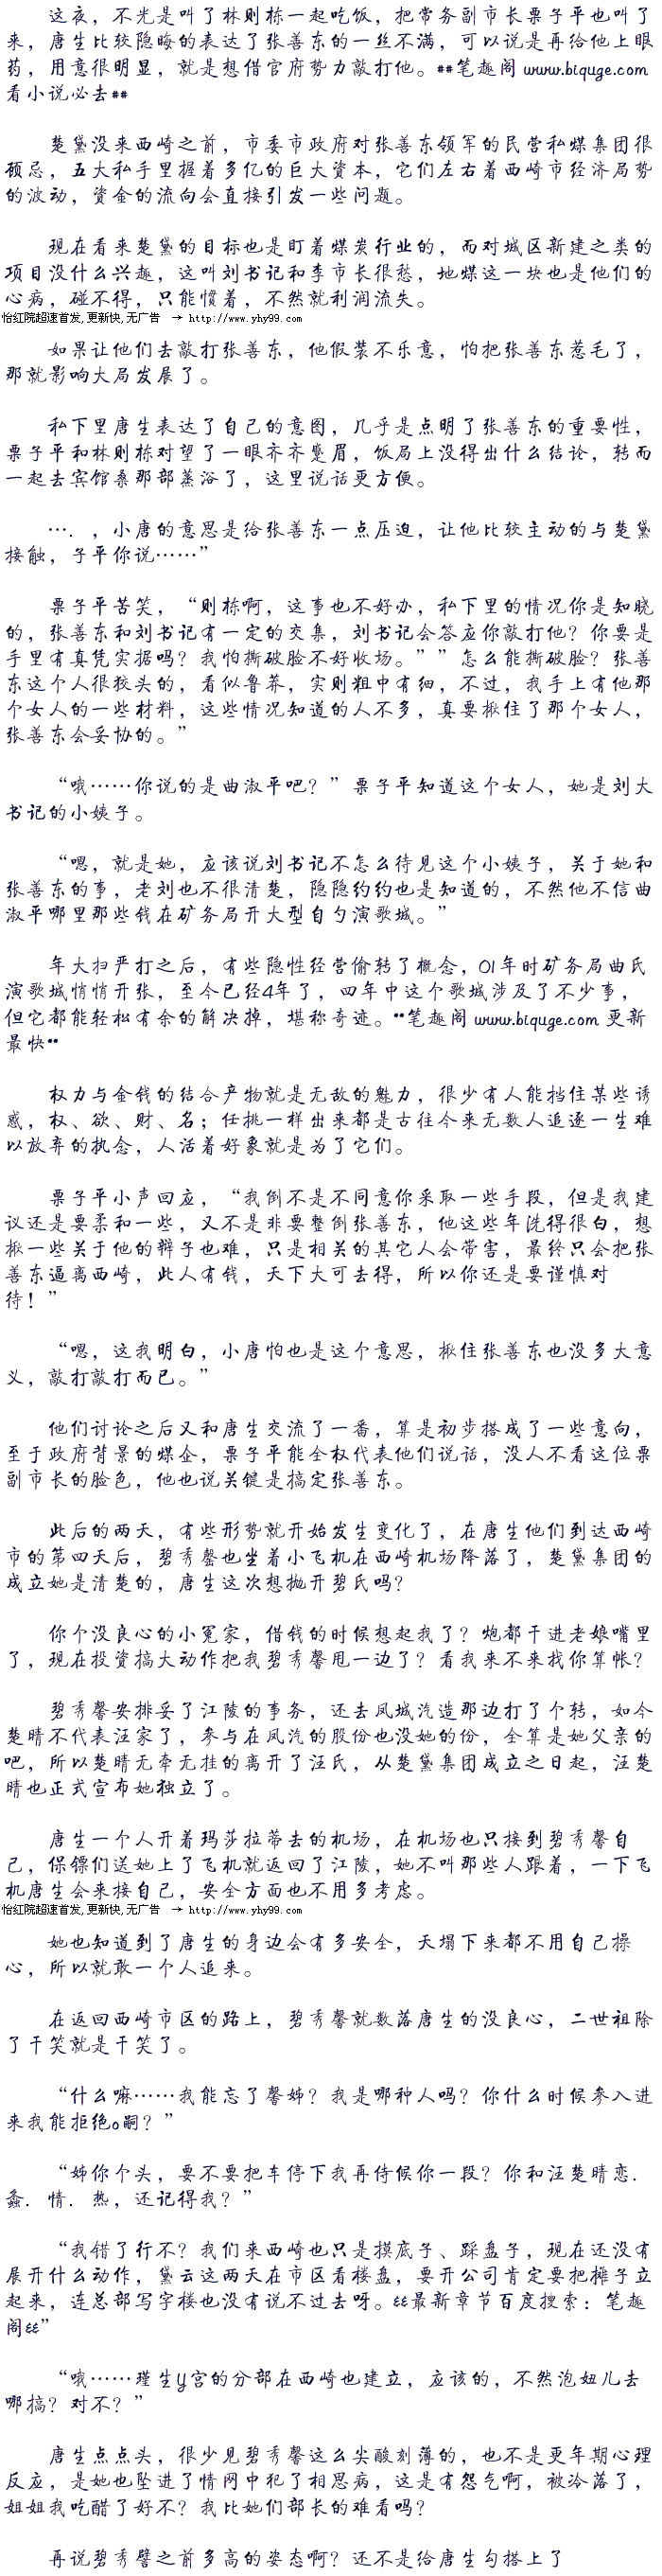 这夜，不光是叫了林则栋一起吃饭，把常务副市长栗子平也叫了
来，唐生比较隐晦的表达了张善东的一丝不满，可以说是再给他上眼
药，用意很明显，就是想借官府势力敲打他。##笔趣阁 www.biquge.com
看小说必去##
楚黛没来西崎之前，市委市政府对张善东领军的民营私煤集团很
顾忌，五大私手里握着多亿的巨大资本，它们左右着西崎市经济局势
的波动，资金的流向会直接引发一些问题。
现在看来楚黛的目标也是盯着煤炭行业的，而对城区新建之类的
项目没什么兴趣，这叫刘书记和李市长很愁，地煤这一块也是他们的
心病，碰不得，只能惯着，不然就利润流失。
怡红院超速首发,更新快,无广告 → http://www.yhy99.com
如果让他们去敲打张善东，他假装不乐意，怕把张善东惹毛了，
那就影响大局发展了。
私下里唐生表达了自己的意图，几乎是点明了张善东的重要性，
栗子平和林则栋对望了一眼齐齐蹙眉，饭局上没得出什么结论，转而
一起去宾馆桑那部蒸浴了，这里说话更方便。
…．，小唐的意思是给张善东一点压迫，让他比较主动的与楚黛
接触，子平你说……”
栗子平苦笑，“则栋啊，这事也不好办，私下里的情况你是知晓
的，张善东和刘书记有一定的交集，刘书记会答应你敲打他？你要是
手里有真凭实据吗？我怕撕破脸不好收场。””怎么能撕破脸？张善
东这个人很狡头的，看似鲁莽，实则粗中有细，不过，我手上有他那
个女人的一些材料，这些情况知道的人不多，真要揪住了那个女人，
张善东会妥协的。”
“哦……你说的是曲淑平吧？”栗子平知道这个女人，她是刘大
书记的小姨子。
“嗯，就是她，应该说刘书记不怎么待见这个小姨子，关于她和
张善东的事，老刘也不很清楚，隐隐约约也是知道的，不然他不信曲
淑平哪里那些钱在矿务局开大型自勺演歌城。”
年大扫严打之后，有些隐性经营偷转了概念，01年时矿务局曲氏
演歌城悄悄开张，至今已经4年了，四年中这个歌城涉及了不少事，
但它都能轻松有余的解决掉，堪称奇迹。**笔趣阁 www.biquge.com 更新
最快**
权力与金钱的结合产物就是无敌的魅力，很少有人能挡住某些诱
惑，权、欲、财、名；任挑一样出来都是古往今来无数人追逐一生难
以放弃的执念，人活着好象就是为了它们。
栗子平小声回应，“我倒不是不同意你采取一些手段，但是我建
议还是要柔和一些，又不是非要整倒张善东，他这些年洗得很白，想
揪一些关于他的辫子也难，只是相关的其它人会带害，最终只会把张
善东逼离西崎，此人有钱，天下大可去得，所以你还是要谨慎对
待！”
“嗯，这我明白，小唐怕也是这个意思，揪住张善东也没多大意
义，敲打敲打而已。”
他们讨论之后又和唐生交流了一番，算是初步搭成了一些意向，
至于政府背景的煤企，栗子平能全权代表他们说话，没人不看这位栗
副市长的脸色，他也说关键是搞定张善东。
此后的两天，有些形势就开始发生变化了，在唐生他们到达西崎
市的第四天后，碧秀馨也坐着小飞机在西崎机场降落了，楚黛集团的
成立她是清楚的，唐生这次想抛开碧氏吗？
你个没良心的小冤家，借钱的时候想起我了？炮都干进老娘嘴里
了，现在投资搞大动作把我碧秀馨甩一边了？看我来不来找你算帐？
碧秀馨安排妥了江陵的事务，还去凤城汽造那边打了个转，如今
楚晴不代表汪家了，参与在凤汽的股份也没她的份，全算是她父亲的
吧，所以楚晴无牵无挂的离开了汪氏，从楚黛集团成立之日起，汪楚
晴也正式宣布她独立了。
唐生一个人开着玛莎拉蒂去的机场，在机场也只接到碧秀馨自
己，保镖们送她上了飞机就返回了江陵，她不叫那些人跟着，一下飞
机唐生会来接自己，安全方面也不用多考虑。
怡红院超速首发,更新快,无广告 → http://www.yhy99.com
她也知道到了唐生的身边会有多安全，天塌下来都不用自己操
心，所以就敢一个人追来。
在返回西崎市区的路上，碧秀馨就数落唐生的没良心，二世祖除
了干笑就是干笑了。
“什么嘛……我能忘了馨姊？我是哪种人吗？你什么时候参入进
来我能拒绝o嗣？”
“姊你个头，要不要把车停下我再侍候你一段？你和汪楚晴恋．
螽．情．热，还记得我？”
“我错了行不？我们来西崎也只是摸底子、踩盘子，现在还没有
展开什么动作，黛云这两天在市区看楼盘，要开公司肯定要把摊子立
起来，连总部写字楼也没有说不过去呀。&&最新章节百度搜索：笔趣
阁&&”
“哦……瑾生y宫的分部在西崎也建立，应该的，不然泡妞儿去
哪搞？对不？”
唐生点点头，很少见碧秀馨这么尖酸刻薄的，也不是更年期心理
反应，是她也坠进了情网中犯了相思病，这是有怨气啊，被冷落了，
姐姐我吃醋了好不？我比她们部长的难看吗？
再说碧秀譬之前多高的姿态啊？还不是给唐生勾搭上了